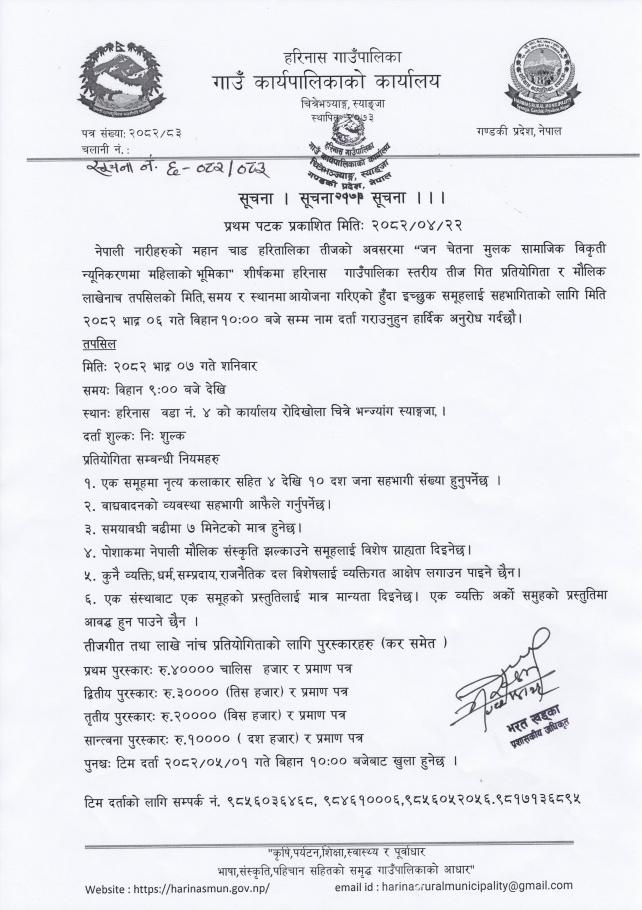 हरिनास गाउँपालिका
गाउँ कार्यपालिकाको कार्यालय
चित्रेभञ्ज्याङ्ग, स्याङ्जा
स्थापित २०७३
HARINAS RURAL MUNICIPALITY
पत्र संख्या: २०८२/८३
गण्डकी प्रदेश, नेपाल
चलानी नं. :
सूचना नं. ६-०८२/०८३
हरिनास गाउँपालिका
गाउँ कार्यपालिकाको कार्यालय
चित्रेभञ्ज्याङ्ग, स्याङ्जा
गण्डकी प्रदेश, नेपाल
२०७३
सूचना । सूचना । सूचना । । ।
प्रथम पटक प्रकाशित मितिः २०८२/०४/२२
नेपाली नारीहरुको महान चाड हरितालिका तीजको अवसरमा "जन चेतना मुलक सामाजिक विकृती
न्यूनिकरणमा महिलाको भूमिका" शीर्षकमा हरिनास गाउँपालिका स्तरीय तीज गित प्रतियोगिता र मौलिक
लाखेनाच तपसिलको मिति, समय र स्थानमा आयोजना गरिएको हुँदा इच्छुक समूहलाई सहभागिताको लागि मिति
२०८२ भाद्र ०६ गते विहान १०:०० बजे सम्म नाम दर्ता गराउनुहुन हार्दिक अनुरोध गर्दछौ।
तपसिल
मितिः २०८२ भाद्र ०७ गते शनिवार
समयः विहान ९:०० बजे देखि
स्थानः हरिनास वडा नं. ४ को कार्यालय रोदिखोला चित्रे भन्ज्यांग स्याङ्गजा, ।
दर्ता शुल्कः निः शुल्क
प्रतियोगिता सम्बन्धी नियमहरु
१. एक समूहमा नृत्य कलाकार सहित ४ देखि १० दश जना सहभागी संख्या हुनुपर्नेछ ।
२. वाद्यवादनको व्यवस्था सहभागी आफैले गर्नुपर्नेछ।
३. समयावधी बढीमा ७ मिनेटको मात्र हुनेछ।
४. पोशाकमा नेपाली मौलिक संस्कृति झल्काउने समूहलाई विशेष ग्राह्यता दिइनेछ।
५. कुनै व्यक्ति, धर्म, सम्प्रदाय, राजनैतिक दल विशेषलाई व्यक्तिगत आक्षेप लगाउन पाइने छैन।
६. एक संस्थाबाट एक समूहको प्रस्तुतिलाई मात्र मान्यता दिइनेछ। एक व्यक्ति अर्को समुहको प्रस्तुतिमा
आवद्ध हुन पाउने छैन ।
तीजगीत तथा लाखे नांच प्रतियोगिताको लागि पुरस्कारहरु (कर समेत )
प्रथम पुरस्कारः रु.४०००० चालिस हजार र प्रमाण पत्र
द्वितीय पुरस्कारः रु.३०००० (तिस हजार) र प्रमाण पत्र
तृतीय पुरस्कारः रु.२०००० (विस हजार) र प्रमाण पत्र
सान्त्वना पुरस्कारः रु.१०००० ( दश हजार) र प्रमाण पत्र
भरत खड्का
प्रशासकीय अधिकृत
पुनश्चः टिम दर्ता २०८२/०५/०१ गते बिहान १०:०० बजेबाट खुला हुनेछ ।
टिम दर्ताको लागि सम्पर्क नं. ९८५६०३६४६८, ९८४६१०००६,९८५६०५२०५६.९८१७१३६८९५
"कृषि,पर्यटन,शिक्षा,स्वास्थ्य र पूर्वाधार
भाषा,संस्कृति,पहिचान सहितको समृद्ध गाउँपालिकाको आधार"
Website : https://harinasmun.gov.np/ email id : harinasruralmunicipality@gmail.com